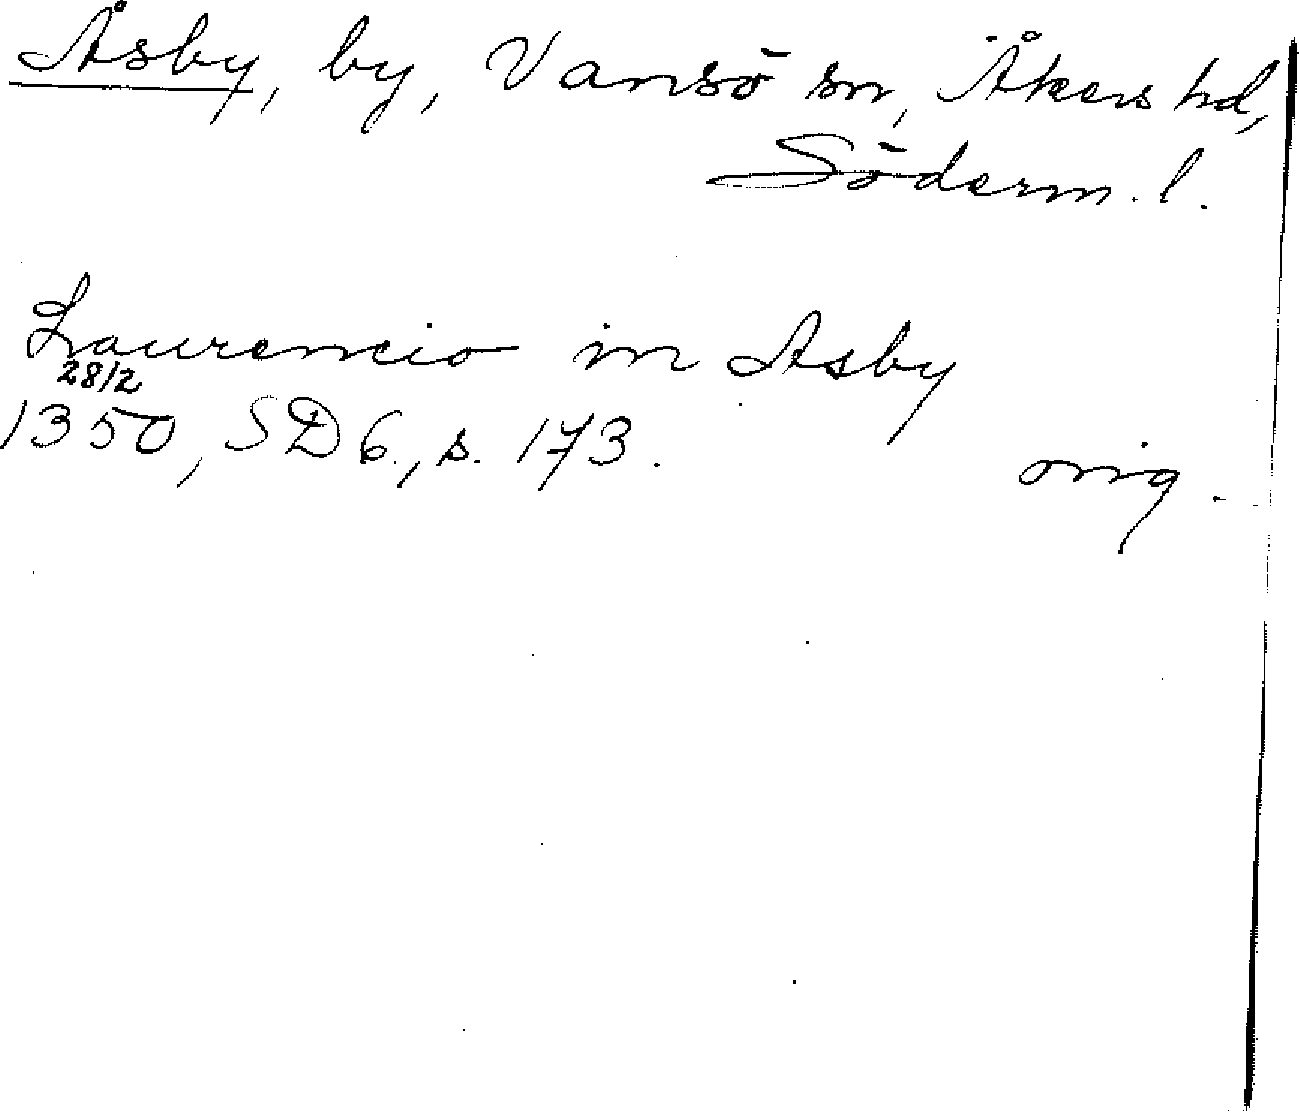 Åsby, by, Vansö sn, Åkers hd,
Söderm. l.
Laurencio in Asby
28/2
1350, SD 6, s. 173.
orig.